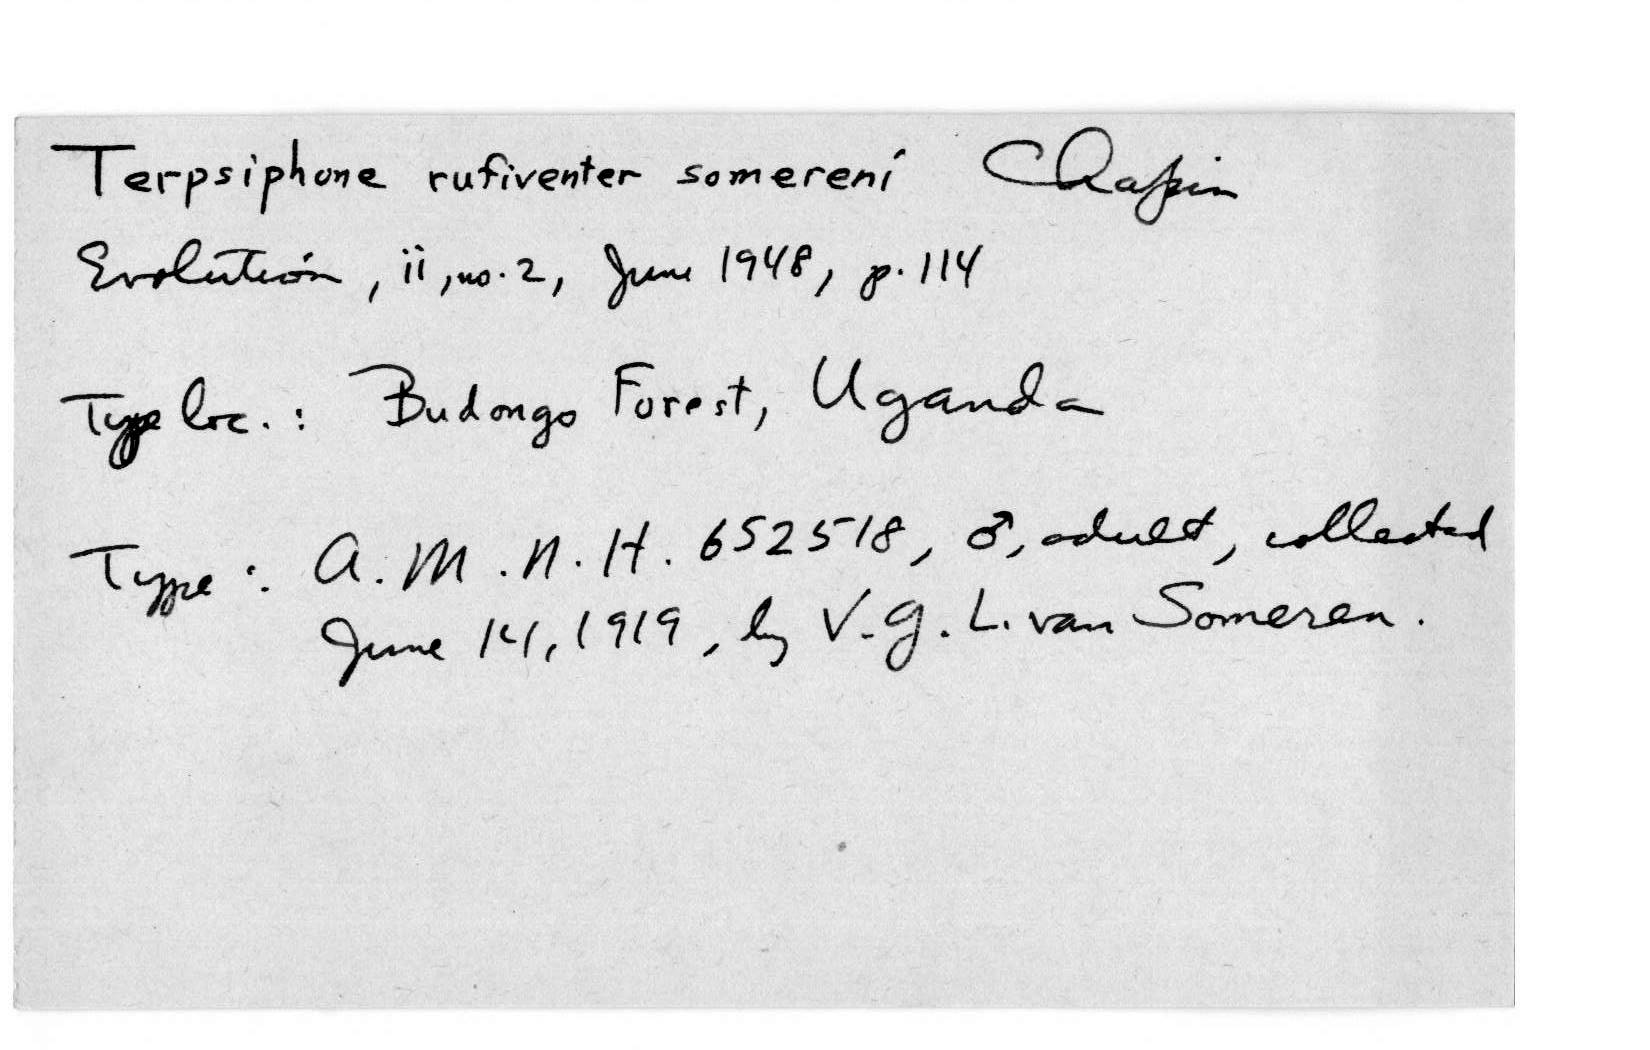 Terpsiphone rufiventer somereni Chapin
Evolution, ii, no. 2, June 1948, p. 114
Type loc. : Budongo Forest, Uganda
Type : A. M. N. H. 652518, ♂, adult, collected
June 14, 1919, by V. G. L. van Someren.